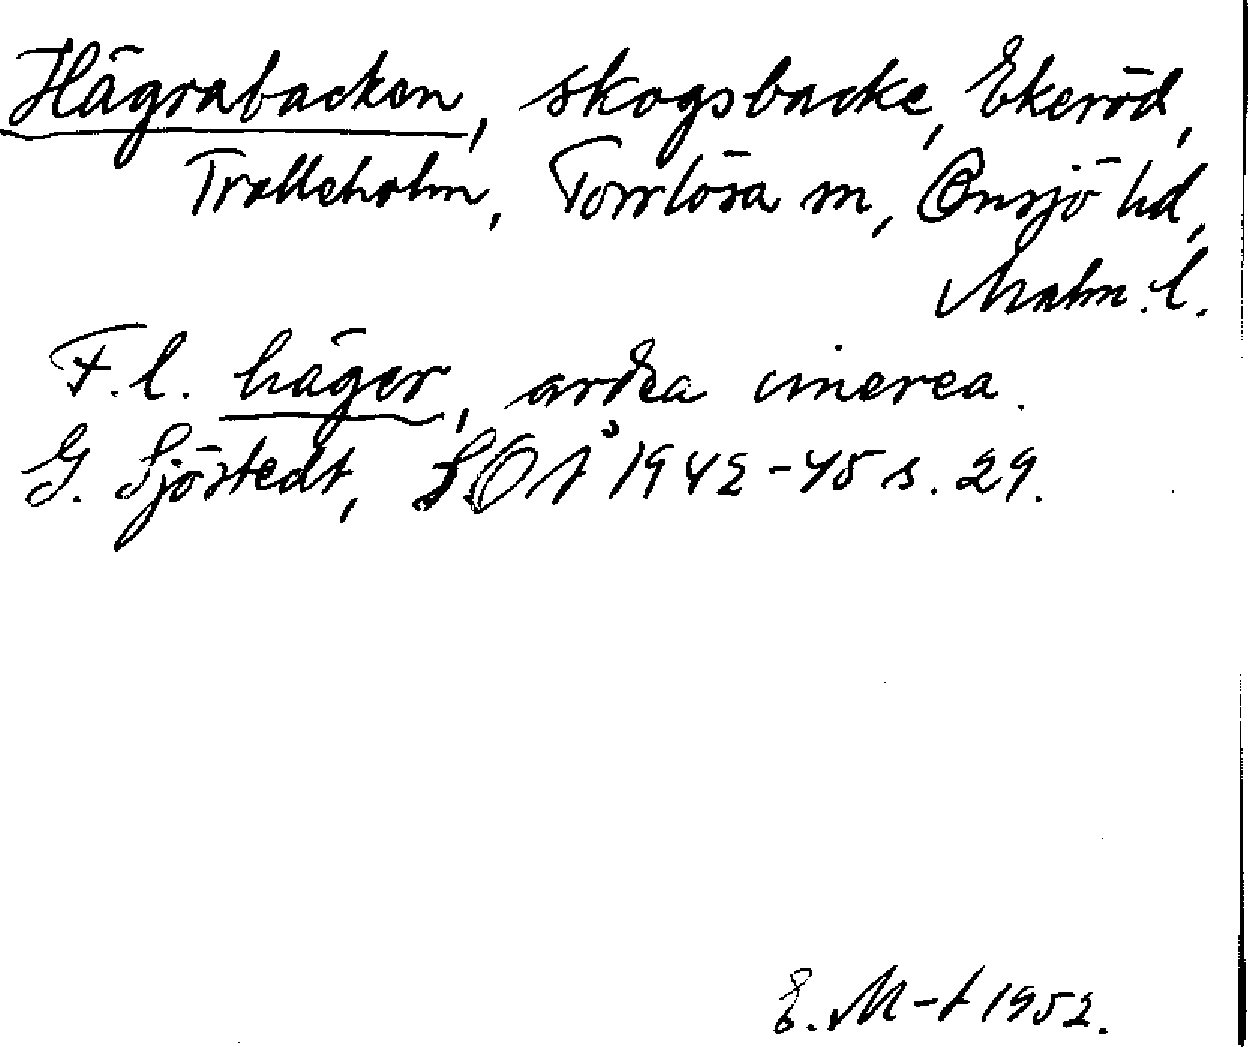 Hägrabacken, skogsbacke, Ekeröd,
Trolleholm, Torrlösa sn, Onsjö hd,
Malm. l.
F.l. häger, ardea cinerea.
G. Sjöstedt, SOÅ 1942-45 s. 29.
E. M-t 1952.